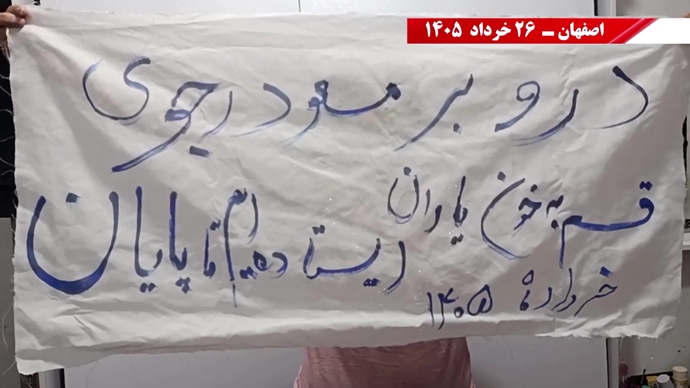 اصفهان ـ ۲۶ خرداد ۱۴۰۵
درود بر مسعود رجوی
قسم به خون یاران
ایستاده‌ایم تا پایان
خرداد ماه ۱۴۰۵